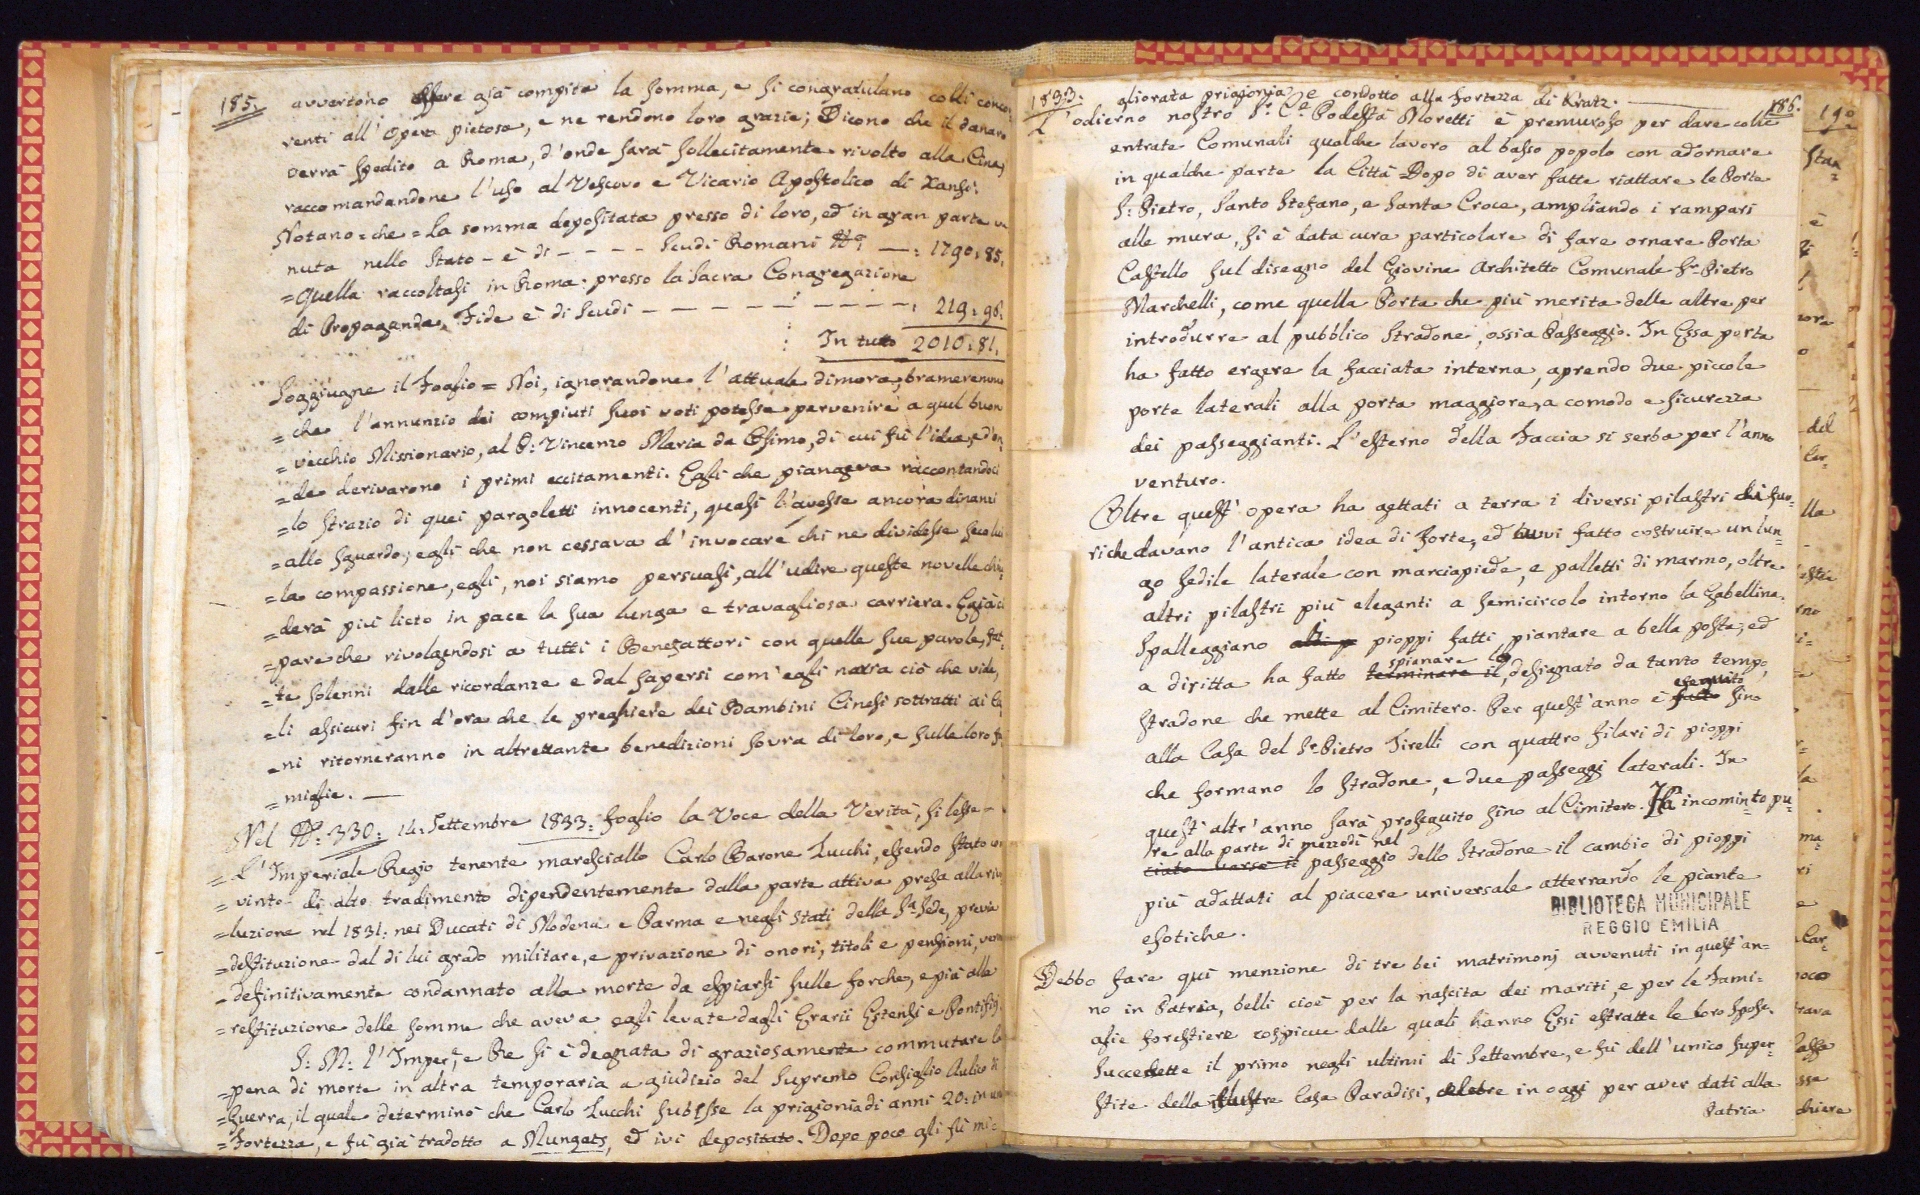 185.
avvertono essere già compita la somma, e si congratulano colli concor-
renti all'opera pietosa, e ne rendono loro grazie; Dicono che il danaro
verrà spedito a Roma, d'onde sarà sollecitamente rivolto alla Cina,
raccomandandone l'uso al Vescovo e Vicario Apostolico di Xansi.
Notano = che = La somma depositata presso di loro, ed in gran parte ve
nuta nello Stato - è di - - - - Scudi Romani N.º — : 1790:85.
= Quella raccoltasi in Roma presso la Sacra Congregazione
di Propaganda Fide è di Scudi - - - - - - - - : 219:96.
In tutto 2010:81.
Soggiugne il Foglio = Noi, ignorandone l'attuale dimora, brameremmo
= che l'annunzio dei compiuti suoi voti potesse pervenire a quel buon
= vecchio Missionario, al P: Vincenzo Maria da Cosimo, di cui fù l'idea, e d'on
= de derivarono i primi eccitamenti. Egli che piangeva raccontandoci
= lo strazio di quei pargoletti innocenti, quasi l'avesse ancora dinanzi
= allo sguardo; egli che non cessava d'invocare chi ne dividesse seco lui
= la compassione, egli, noi siamo persuasi, all'udire queste novelle chiu
= derà più lieto in pace la sua lunga e travagliosa carriera. E già ci
= pare che rivolgendosi a tutti i Benefattori con quelle sue parole, fat-
= te solenni dalle ricordanze e dal sapersi com'egli narra ciò che vide,
= li assicuri fin d'ora che le preghiere dei Bambini Cinesi sottratti ai Ca
= ni ritorneranno in altrettante benedizioni sovra di loro, e sulle loro fa
= miglie. —
Nel N.º 330: 14: Settembre 1833: foglio la Voce della Verità, si lesse -
= L'Imperiale Regio tenente maresciallo Carlo Barone Zucchi, essendo stato con
= vinto di alto tradimento dipendentemente dalla parte attiva presa alla rivo
= luzione nel 1831: nei Ducati di Modena e Parma e negli Stati della Sª Sede, previa
= destituzione dal di lui grado militare, e privazione di onori, titoli e pensioni, venne
= definitivamente condannato alla morte da espiarsi sulle forche, e più alla
= restituzione delle somme che aveva egli levate dagli Erarii Estensi e Pontifici.
S: M: l'Imper.e e Re si è degnata di graziosamente commutare la
= pena di morte in altra temporaria a giudizio del Supremo Consiglio Aulico di
= Guerra, il quale determinò che Carlo Zucchi subisse la prigionia di anni 20: in una
= Fortezza, e fù già tradotto a Mungats, ed ivi depositato. Dopo poco gli fù mi-
1833.
186.
gliorata prigionia, e condotto alla Fortezza di Kratz.
L'odierno nostro Sr. Ce. Podestà Moretti è premuroso per dare colle
entrate Comunali qualche lavoro al basso popolo con adornare
in qualche parte la Città Dopo di aver fatte riattare le Porte
S: Pietro, Santo Stefano, e Santa Croce, ampliando i rampari
alle mura, si è data cura particolare di fare ornare Porta
Castello sul disegno del Giovine Architetto Comunale Sr. Pietro
Marchelli, come quella Porta che più merita delle altre per
introdurre al pubblico Stradone, ossia Passeggio. In Essa porta
ha fatto ergere la facciata interna, aprendo due piccole
porte laterali alla porta maggiore, a comodo e sicurezza
dei passeggianti. L'esterno della Faccia si serba per l'anno
venturo.
Oltre quest'opera ha gettati a terra i diversi pilastri di fuo-
ri che davano l'antica idea di Forte, ed ivi fatto costruire un lun-
go sedile laterale con marciapiede, e palletti di marmo, oltre
altri pilastri più eleganti a semicircolo intorno la Gabellina.
Spalleggiano li pioppi fatti piantare a bella posta, ed
a diritta ha fatto terminare il spianare lo, designato da tanto tempo,
Stradone che mette al Cimitero. Per quest'anno è fatto eseguito sino
alla Casa del Sr. Pietro Tirelli con quattro filari di pioppi
che formano lo Stradone, e due passeggi laterali. In
quest'altr'anno sarà proseguito sino al Cimitero. Ha incominto pu-
re alla parte di mezzodì nel
ciato verso il passeggio dello Stradone il cambio di pioppi
più adattati al piacere universale atterrando le piante
esotiche.
BIBLIOTECA MUNICIPALE
REGGIO EMILIA
Debbo fare quì menzione di tre bei matrimonj avvenuti in quest'an-
no in Patria, belli cioè per la nascita dei mariti, e per le Fami-
glie forestiere cospicue dalle quali hanno Essi estratte le loro Spose.
Succedette il primo negli ultimi di Settembre, e fù dell'unico super-
stite della illustre Casa Paradisi, celebre in oggi per aver dati alla
Patria
190